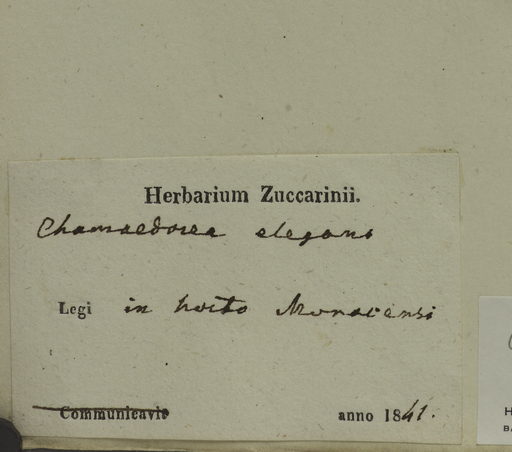 Herbarium Zuccarinii.
Chamaedorea elegans
Legi in horto Monacensi
Communicavit anno 1841.